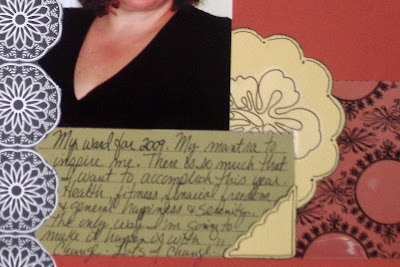 My word for 2009. My mantra to
inspire me. There is so much that
I want to accomplish this year.
Health, fitness, financial freedom
& general happiness & serenity.
the only way I'm going to
make it happen is with
change. Lots of change.